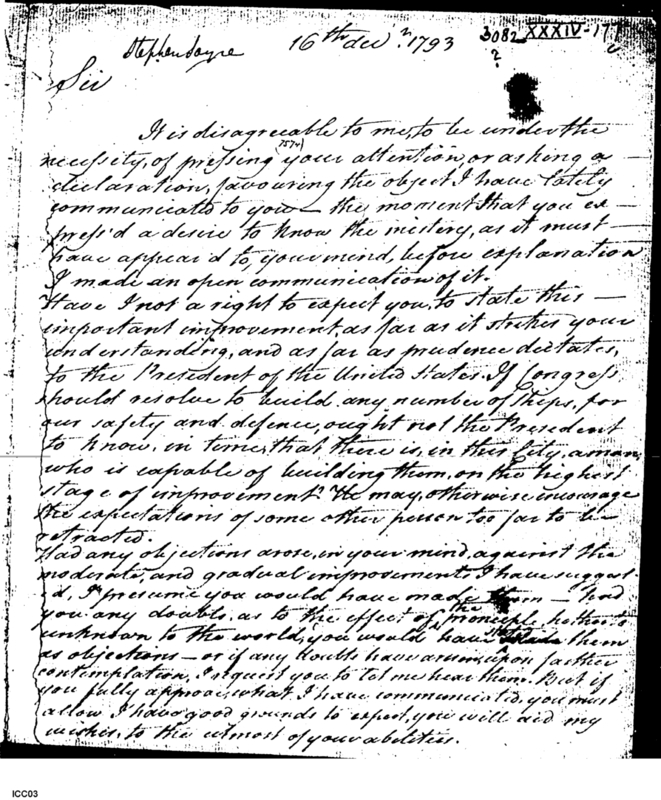 Stephen Sayre 16th decr. 1793 3082 XXXIV-17
?
Sir
It is disagreeable to me, to be under the
necessity, of pressing your attention, or asking a —
declaration, favouring the object I have lately
communicated to you — the moment that you ex-
press'd a desire to know the mistery, as it must —
have appear'd to, your mind, before explanation
I made an open communication of it.
Have I not a right to expect you, to state this —
important improvement, as far as it strikes your
understanding, and as far as prudence dictates,
to the President of the United States. If Congress
should resolve to build any number of Ships, for
our safety and defence, ought not the President
to know, in time, that there is, in this City, a man,
who is capable of building them, on the highest
stage of improvement? He may, otherwise incourage
the expectations of some other person too far to be
retracted.
Had any objections arose, in your mind, against the
moderate, and gradual improvements I have suggest-
d, I presume you would have made them — had
you any doubts, as to the effect of the principle, hetherto
unknown to the world, you would have them
as objections — or if any doubts have arisen, upon farther
contemplation, I request you to let me hear them. But if
you fully approve, what I have communicated, you must
allow I have good grounds to expect, you will aid my
wishes, to the utmost of your abilities.
ICC03